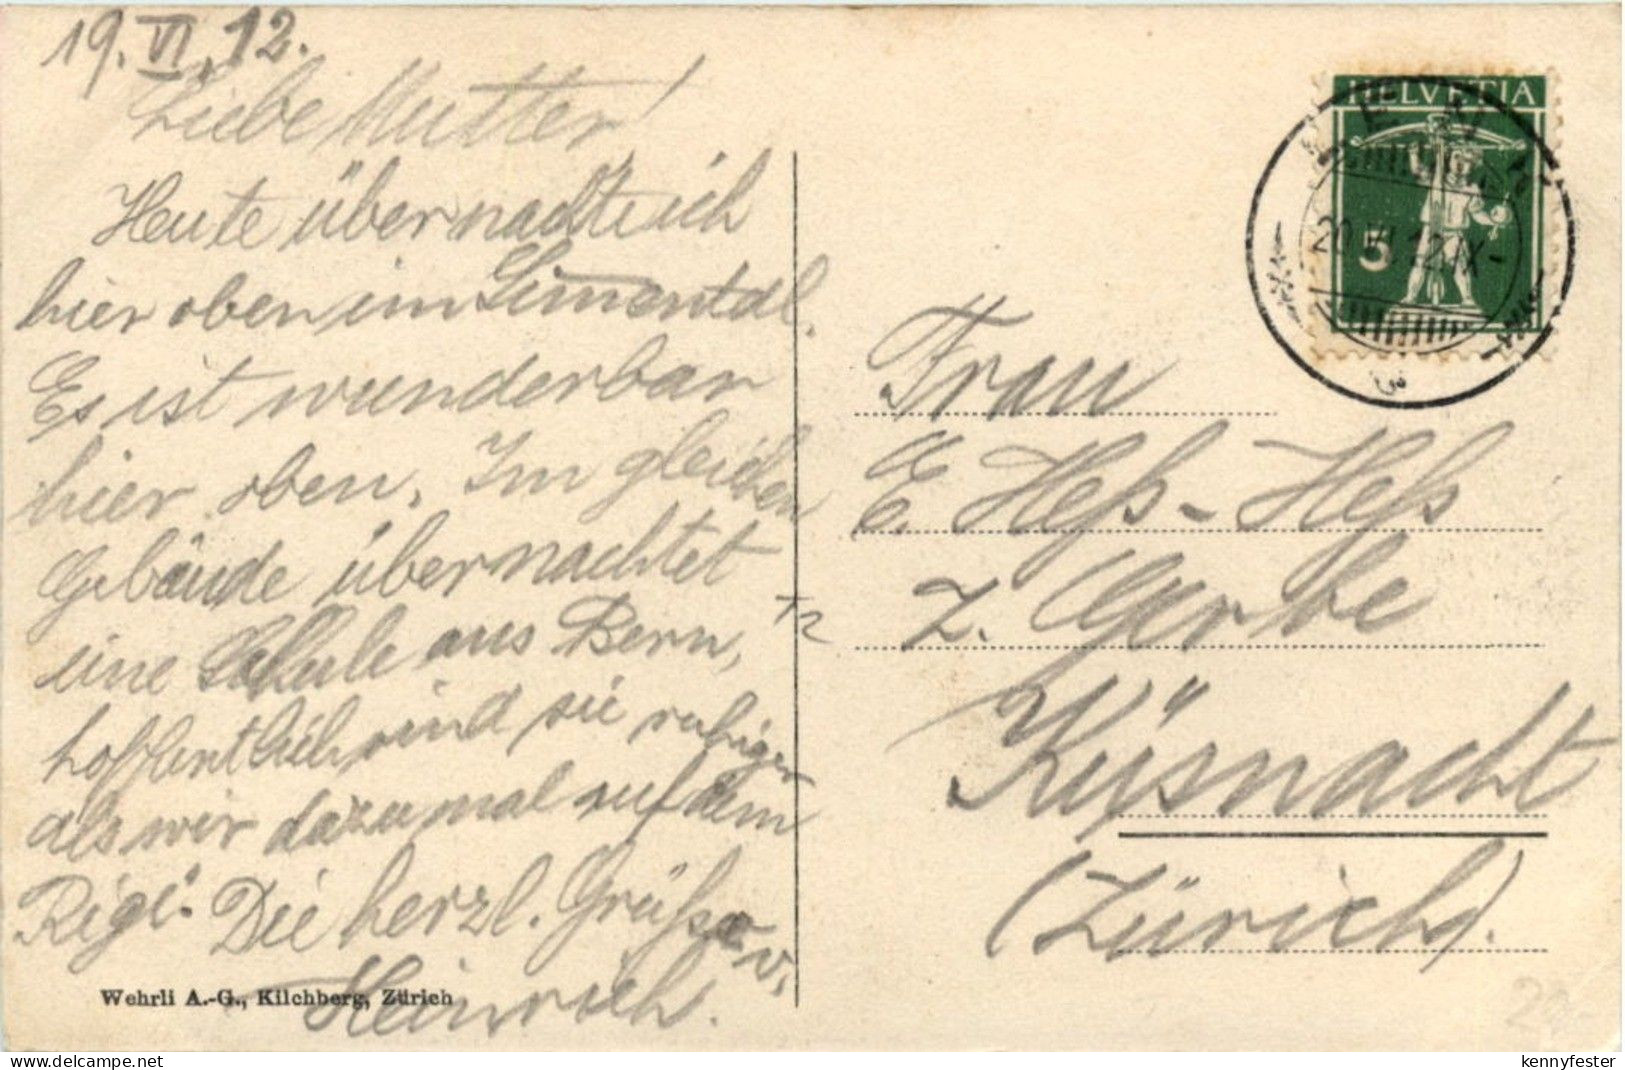 19. VI. 12.
Liebe Mutter!
Heute übernachte ich
hier oben im Simental.
Es ist wunderbar
hier oben. Im gleichen
Gebäude übernachtet
eine Schule aus Bern,
hoffentlich sind sie ruhiger
als wir dazumal auf dem
Rigi. Die herzl. Grüße v.
Heinrich.
Wehrli A.-G., Kilchberg, Zürich
HELVETIA
5
20. VI. 12. IX-
Frau
E. Heß-Heß
z. Gerbe
Küsnacht
(Zürich).
29.-
kennyfester